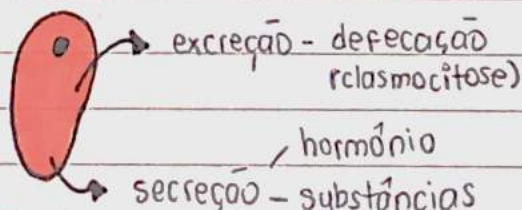 excreção - defecação
(clasmocitose)
hormônio
secreção - substâncias